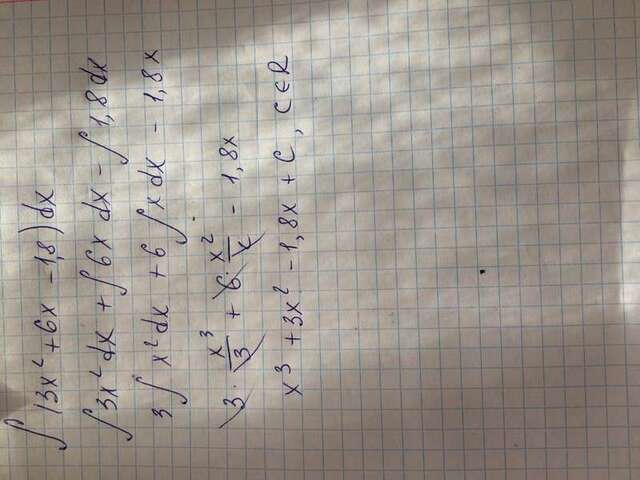 ∫(3x² + 6x - 1,8) dx
∫3x² dx + ∫6x dx - ∫1,8 dx
3∫x² dx + 6∫x dx - 1,8x
3 · x³/3 + 6 · x²/2 - 1,8x
x³ + 3x² - 1,8x + C, C∈R